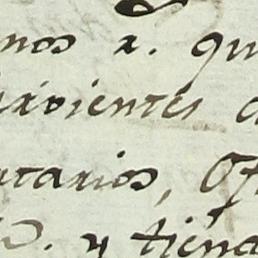 nos a. qu
irvientes d
tarios, Of
D. y tiend